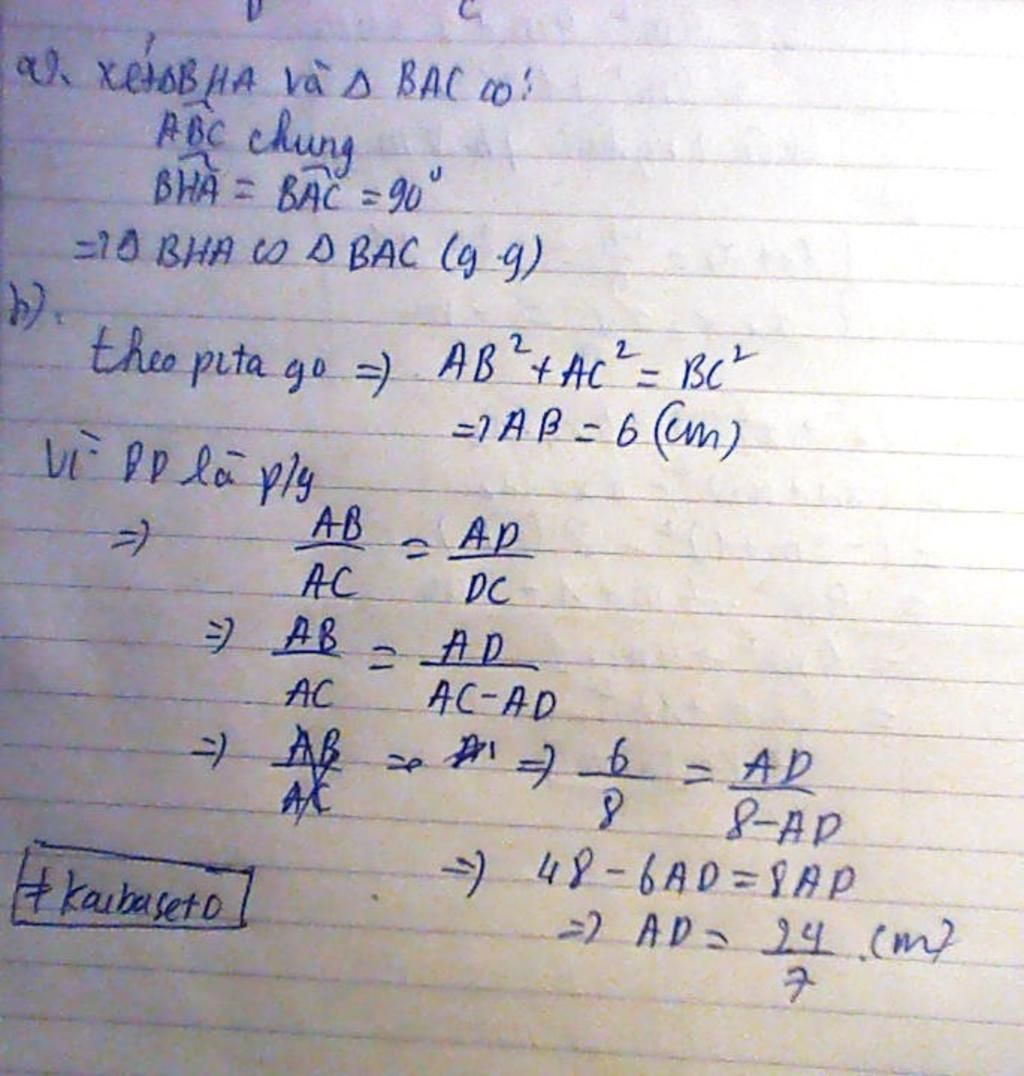 a). xét ΔBHA và Δ BAC có:
ABC chung
BHA = BAC = 90°
=> Δ BHA ∽ Δ BAC (g.g)
b).
theo pita go => AB² + AC² = BC²
=> AB = 6 (cm)
Vì BD là p/g
=> AB/AC = AD/DC
=> AB/AC = AD/AC-AD
=> => 6/8 = AD/8-AD
=> 48-6AD = 8AD
=> AD = 24/7 (cm)
+ Kaibaseto